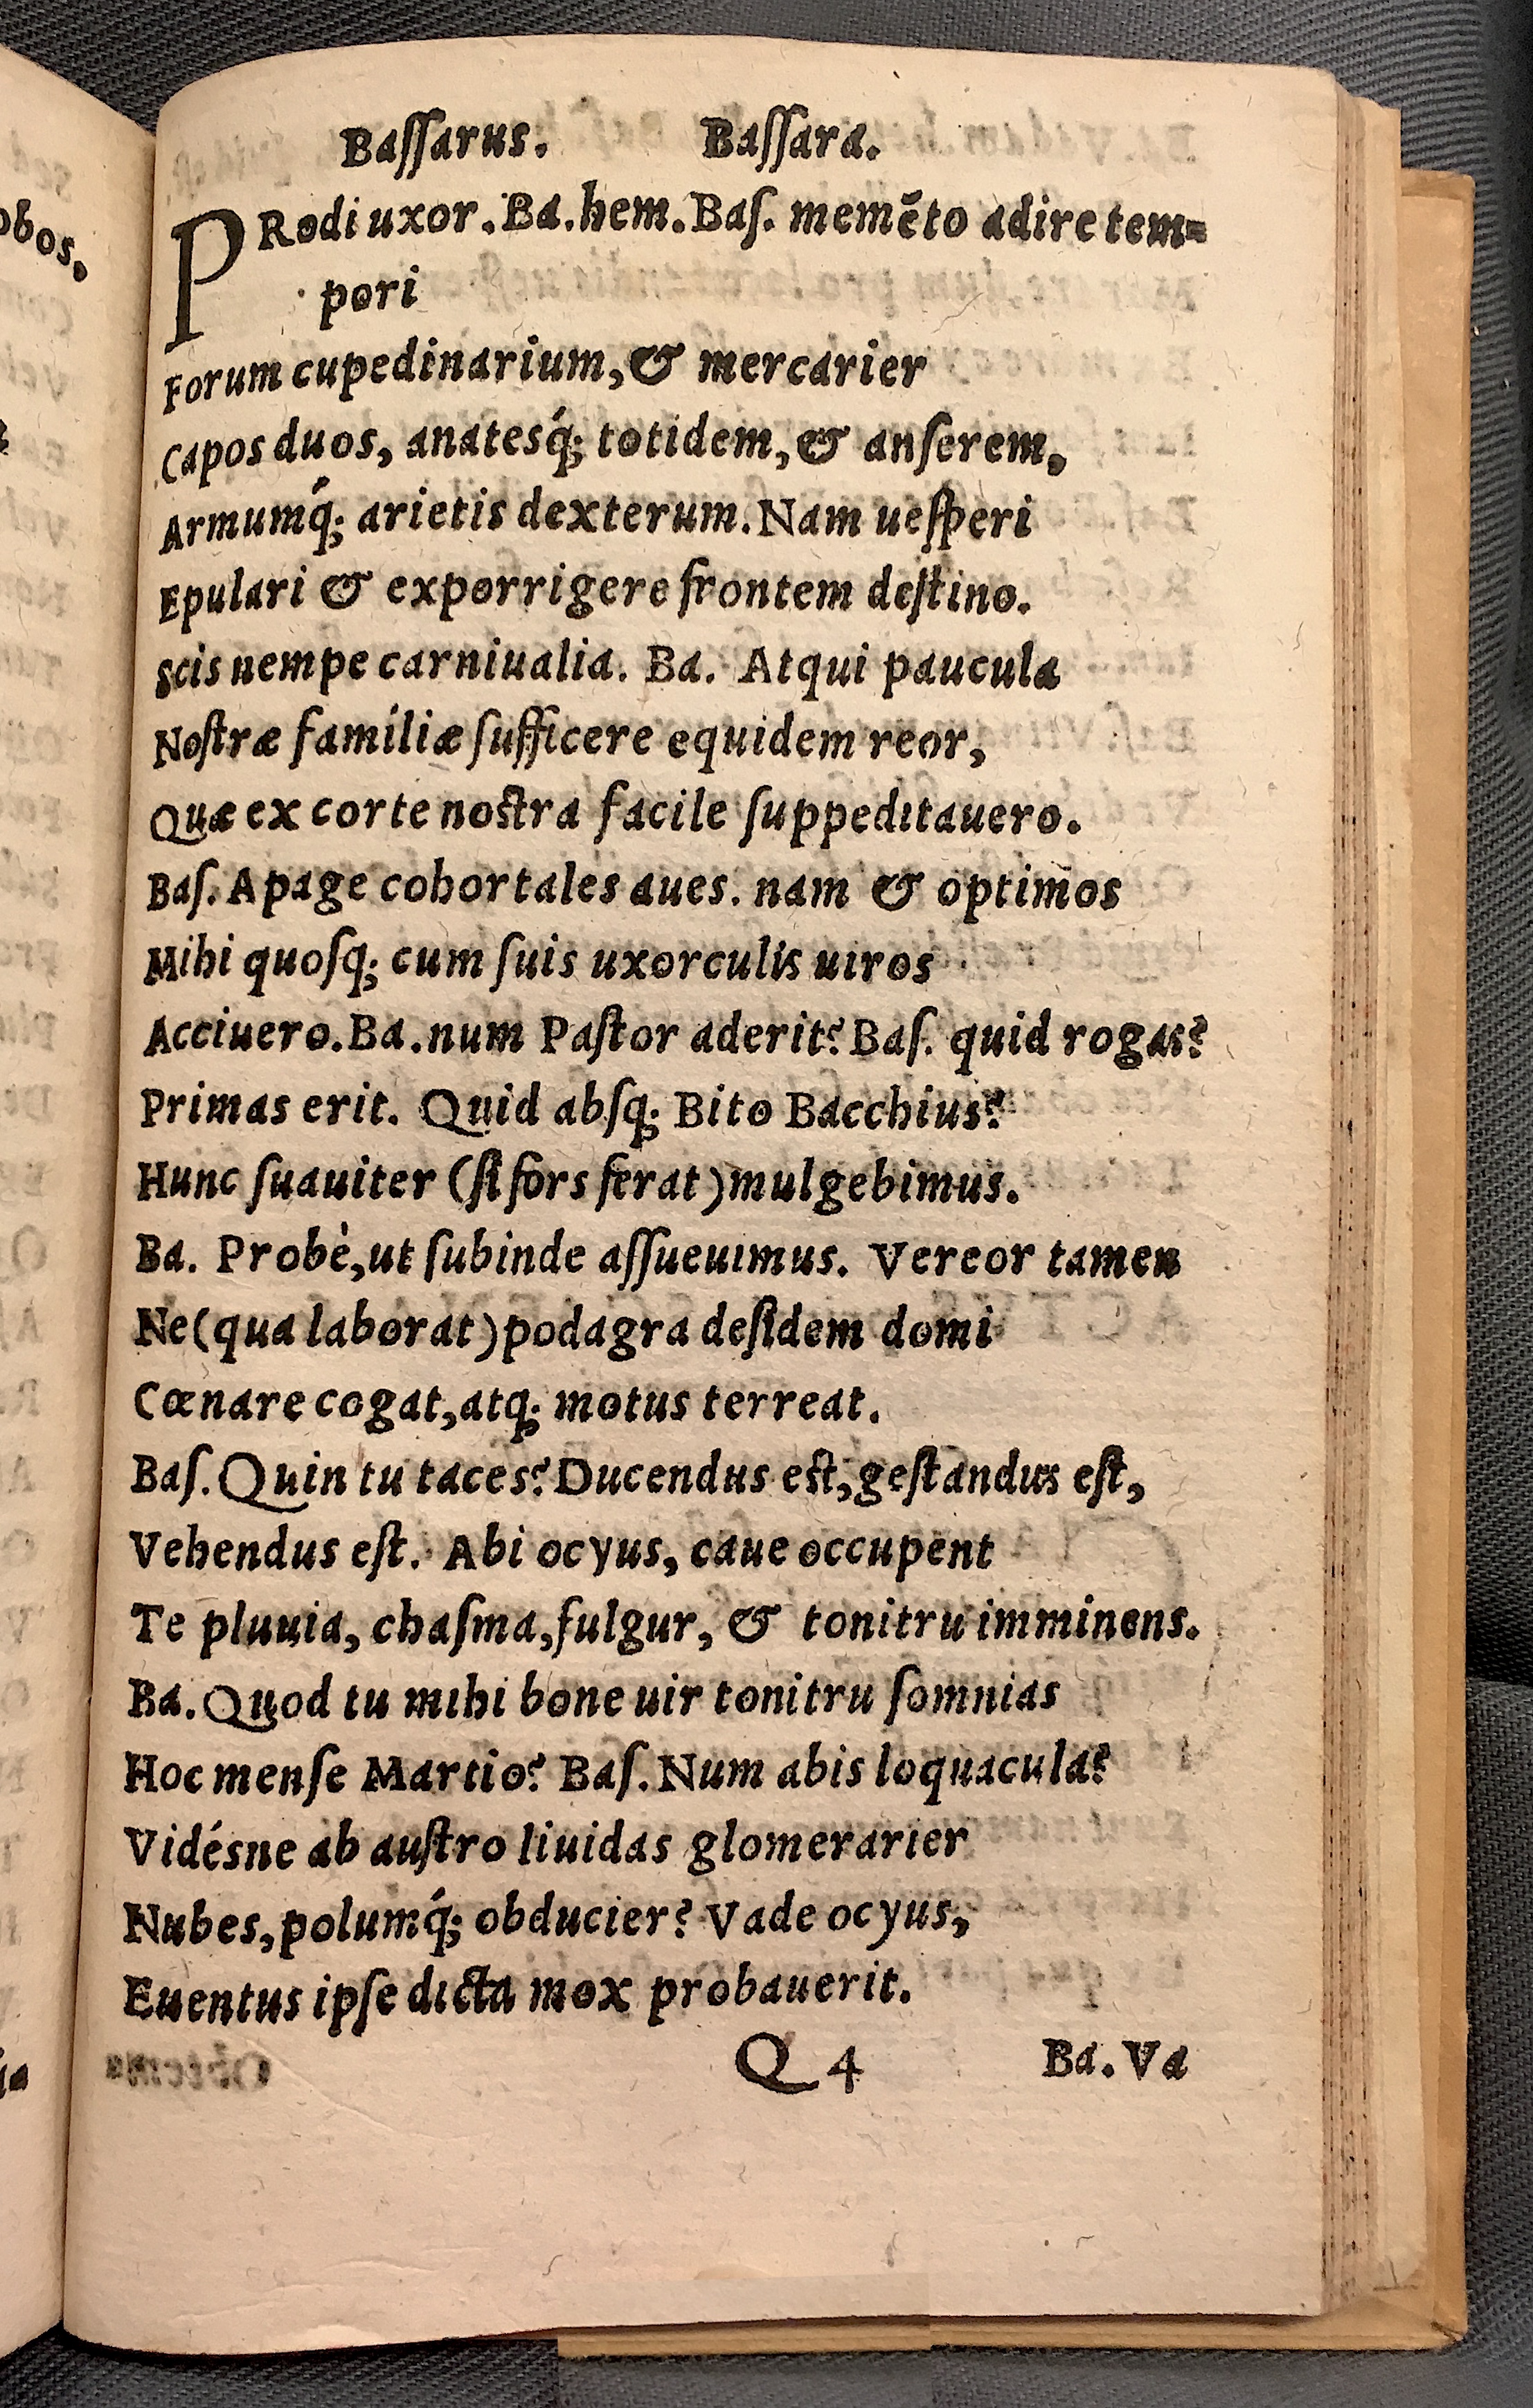 Baſſarus. Baſſara.
PRodi uxor. Ba. hem. Baſ. memẽto adire tem=
pori
Forum cupedinarium, & mercarier
Capos duos, anatesq́; totidem, & anſerem,
Armumq́; arietis dexterum. Nam ueſperi
Epulari & exporrigere frontem deſtino.
Scis nempe carniualia. Ba. Atqui paucula
Noſtræ familiæ ſufficere equidem reor,
Quæ ex corte noſtra facile ſuppeditauero.
Baſ. Apage cohortales aues. nam & optimos
Mihi quoſq; cum ſuis uxorculis uiros
Acciuero. Ba. num Paſtor aderit? Baſ. quid rogas?
Primas erit. Quid abſq; Bito Bacchius?
Hunc ſuauiter (ſi fors ferat) mulgebimus.
Ba. Probè, ut ſubinde aſſueuimus. Vereor tamen
Ne (qua laborat) podagra deſidem domi
Cœnare cogat, atq; motus terreat.
Baſ. Quin tu taces? Ducendus eſt, geſtandus eſt,
Vehendus eſt. Abi ocyus, caue occupent
Te pluuia, chaſma, fulgur, & tonitru imminens.
Ba. Quod tu mihi bone uir tonitru ſomnias
Hoc menſe Martio? Baſ. Num abis loquacula?
Vidésne ab auſtro liuidas glomerarier
Nubes, polumq́; obducier? Vade ocyus,
Euentus ipſe dicta mox probauerit.
Q 4 Ba. Va